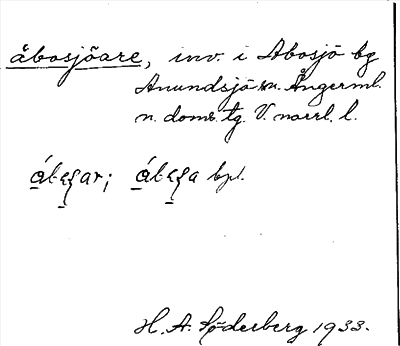 åbosjöare, inv. i Åbosjö bg
Anundsjö sn. Ångerml.
n. doms. tg. V. norrl. l.
bpl.
H. A. Söderberg 1933.